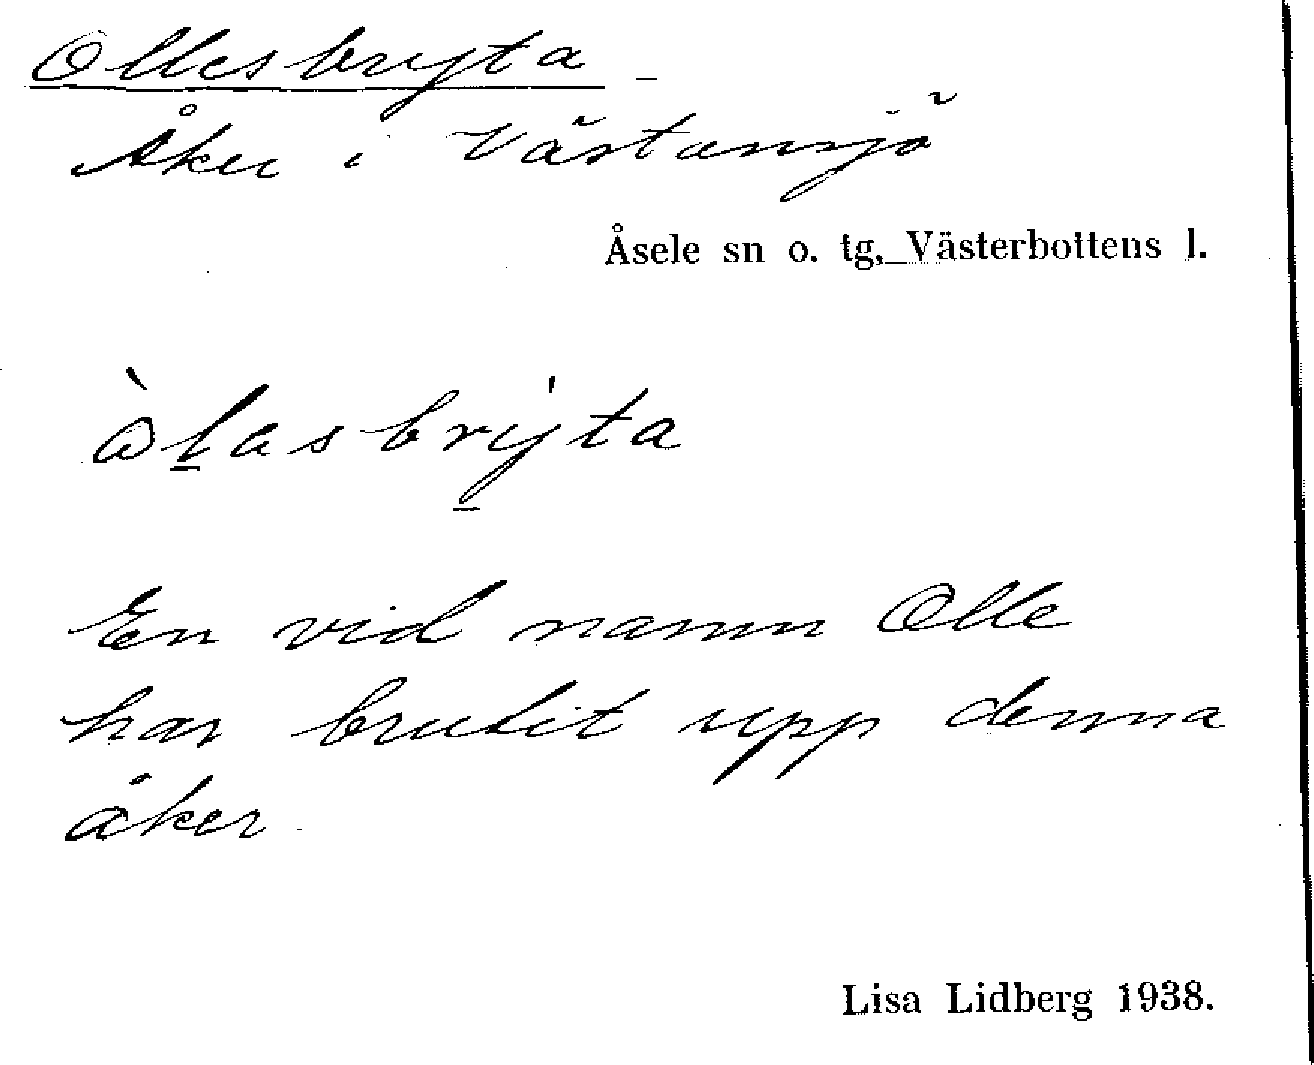 Ollesbryta
Åker i Västansjö
Åsele sn o. tg, Västerbottens l.
òlasbrýta
En vid namn Olle
har brutit upp denna
åker.
Lisa Lidberg 1938.